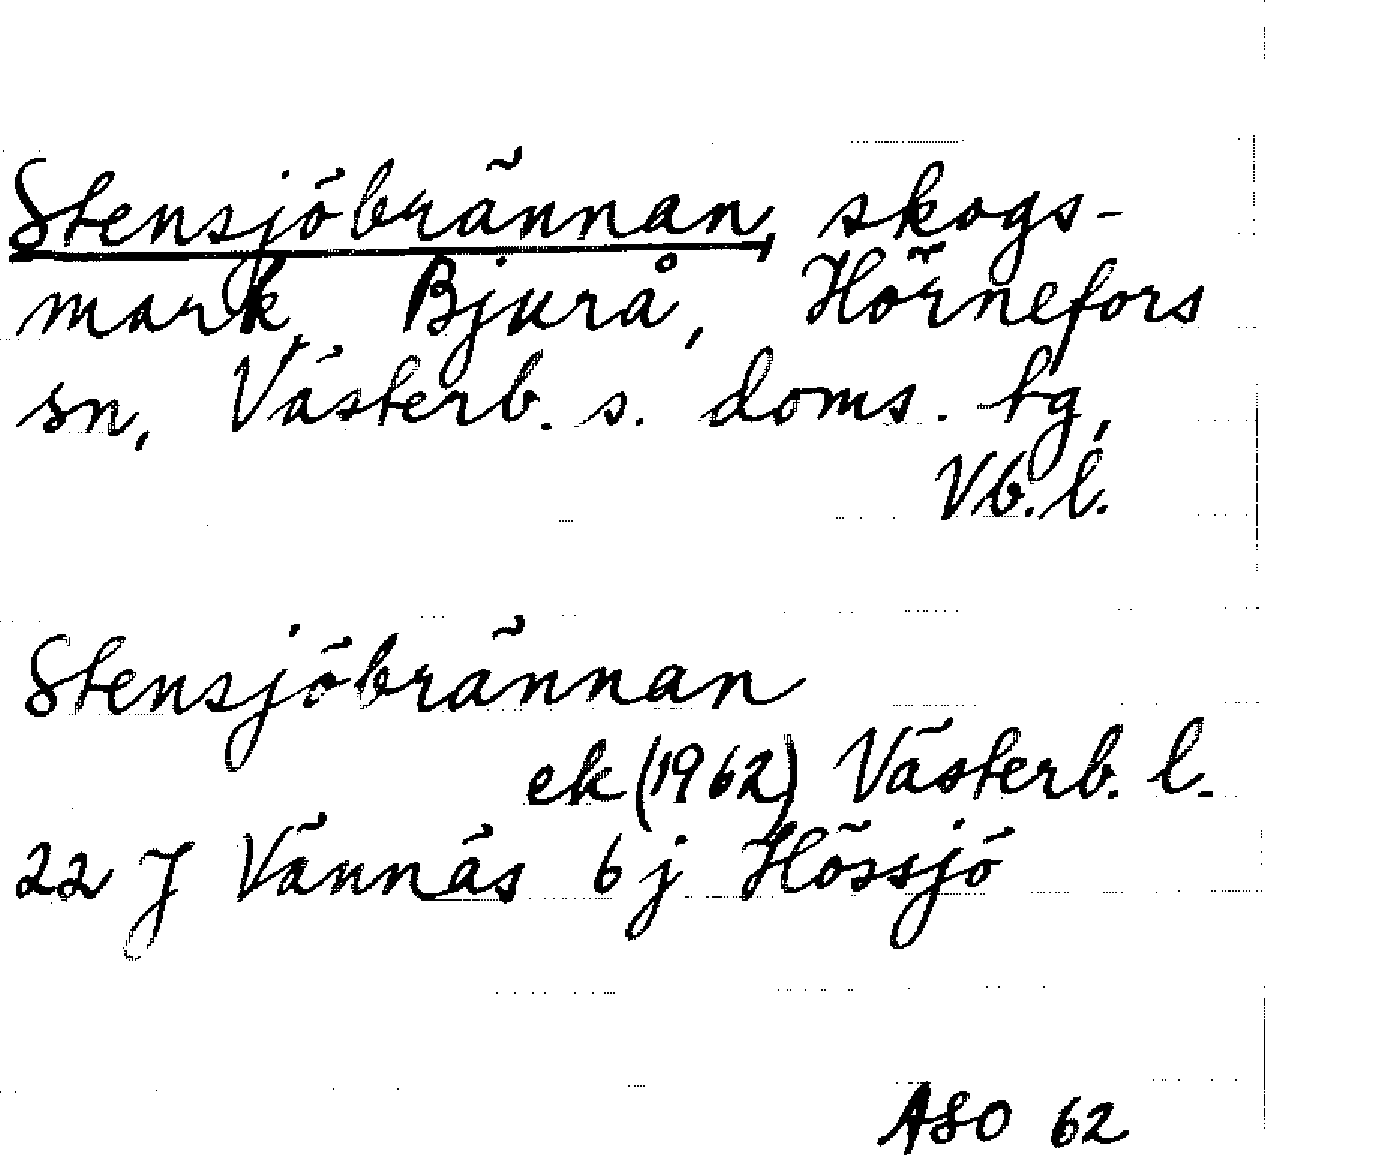 Stensjöbrännan, skogs-
mark, Bjurå, Hörnefors
sn, Västerb. s. doms. tg,
Vb. l.
Stensjöbrännan
ek (1962) Västerb. l.
22 J Vännäs 6 j Hössjö
ASO 62